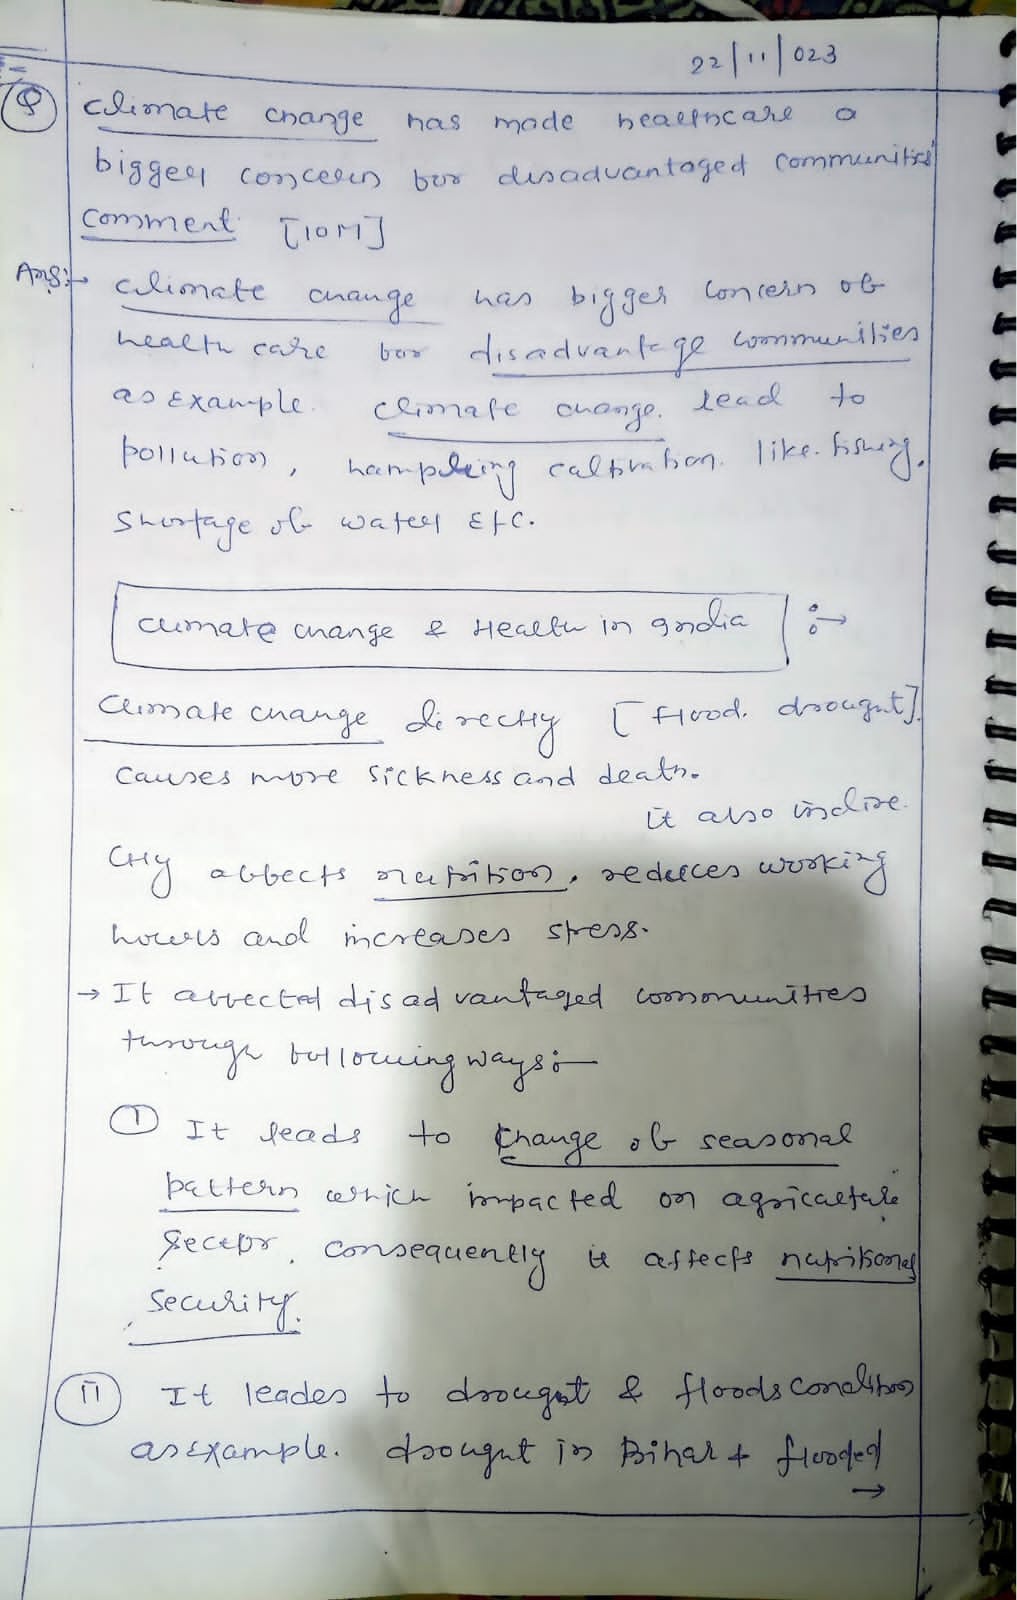 22/11/023
Q climate change has made healthcare a
bigger concern for disadvantaged communities
comment [10M]
Ans:→ climate change has bigger concern of
health care for disadvantage communities
as Example. climate change. lead to
pollution, hampering caltivation. like. fishing,
shortage of water Etc.
climate change & Health in India :→
climate change directly [flood. drought].
causes more sickness and death.
it also indire
ctly affects nutrition, reduces working
hours and increases stress.
→ It affected disadvantaged communities
through following ways:—
(I) It leads to change of seasonal
pattern which impacted on agricalture
sector. consequently it affects nutritional
security.
(II) It leades to drought & floods condition
as Example. drought in Bihar + flooded
→